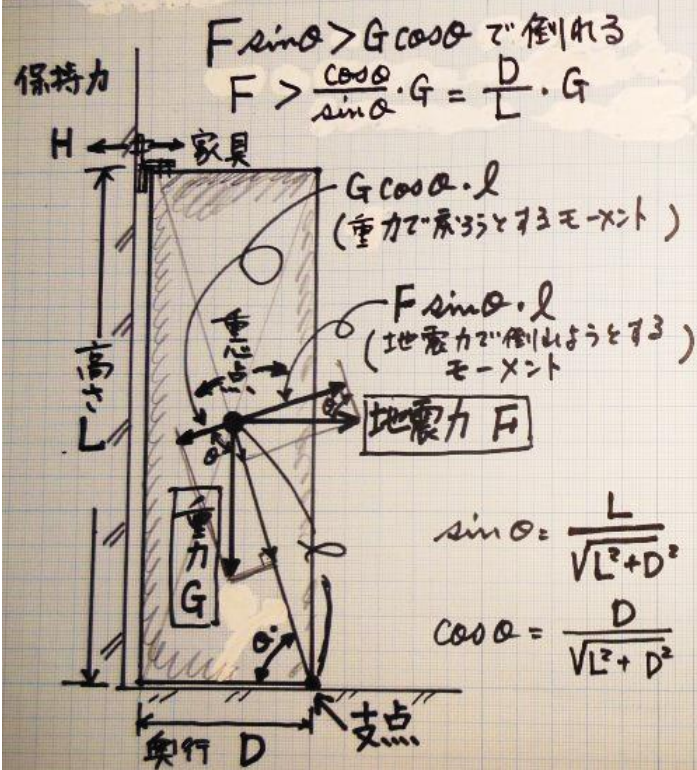 F sinθ > G cosθ で倒れる
F > cosθ/sinθ · G = D/L · G
保持力
H
家具
G cosθ · l
(重力で戻ろうとするモーメント)
F sinθ · l
(地震力で倒れようとする
モーメント
)
重心点
高さ L
θ
θ
地震力 F
重力 G
l
sinθ = L/√L²+D²
cosθ = D/√L²+D²
θ°
支点
奥行 D